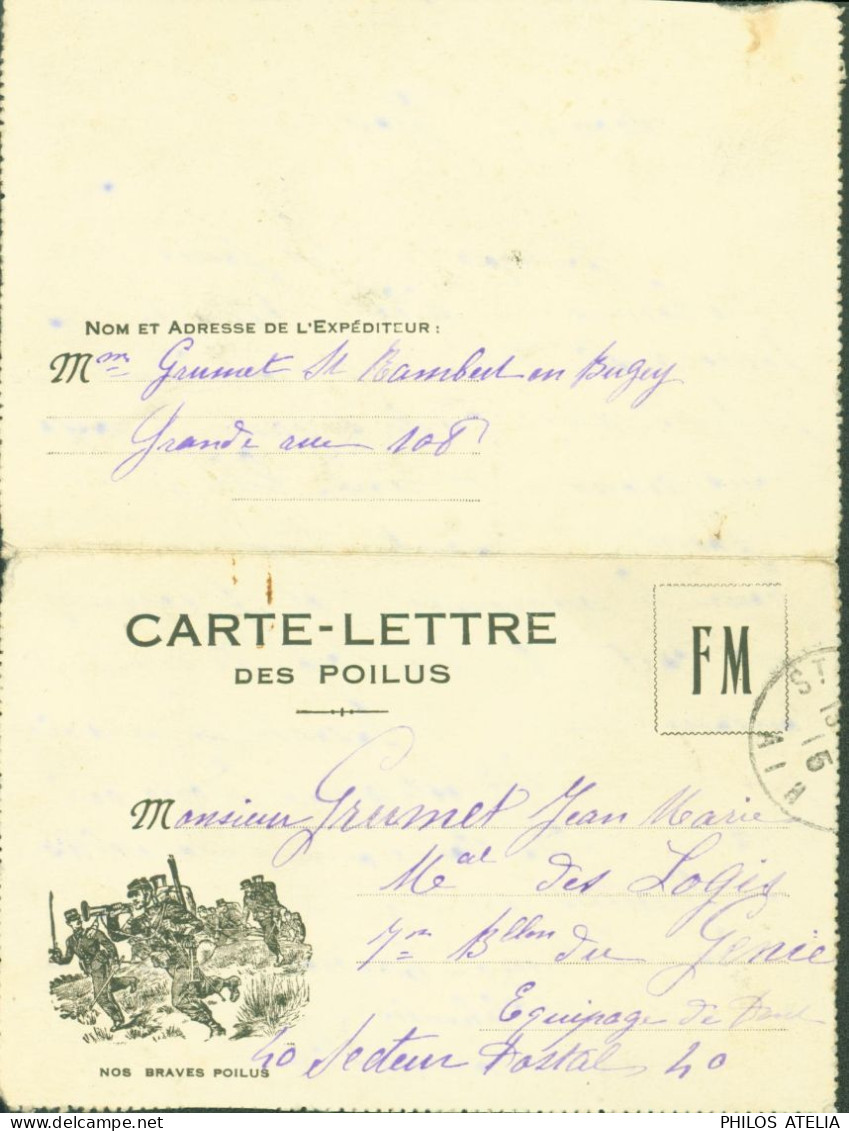 NOM ET ADRESSE DE L'EXPÉDITEUR :
Mme Grumet St Rambert en Bugey
Grande rue 108
CARTE-LETTRE
DES POILUS
FM
ST
15
AIN
Monsieur Grumet Jean Marie
Mal des Logis
7me Bllon du Génie
Equipage de
40 Secteur Postal 40
NOS BRAVES POILUS
PHILOS ATELIA